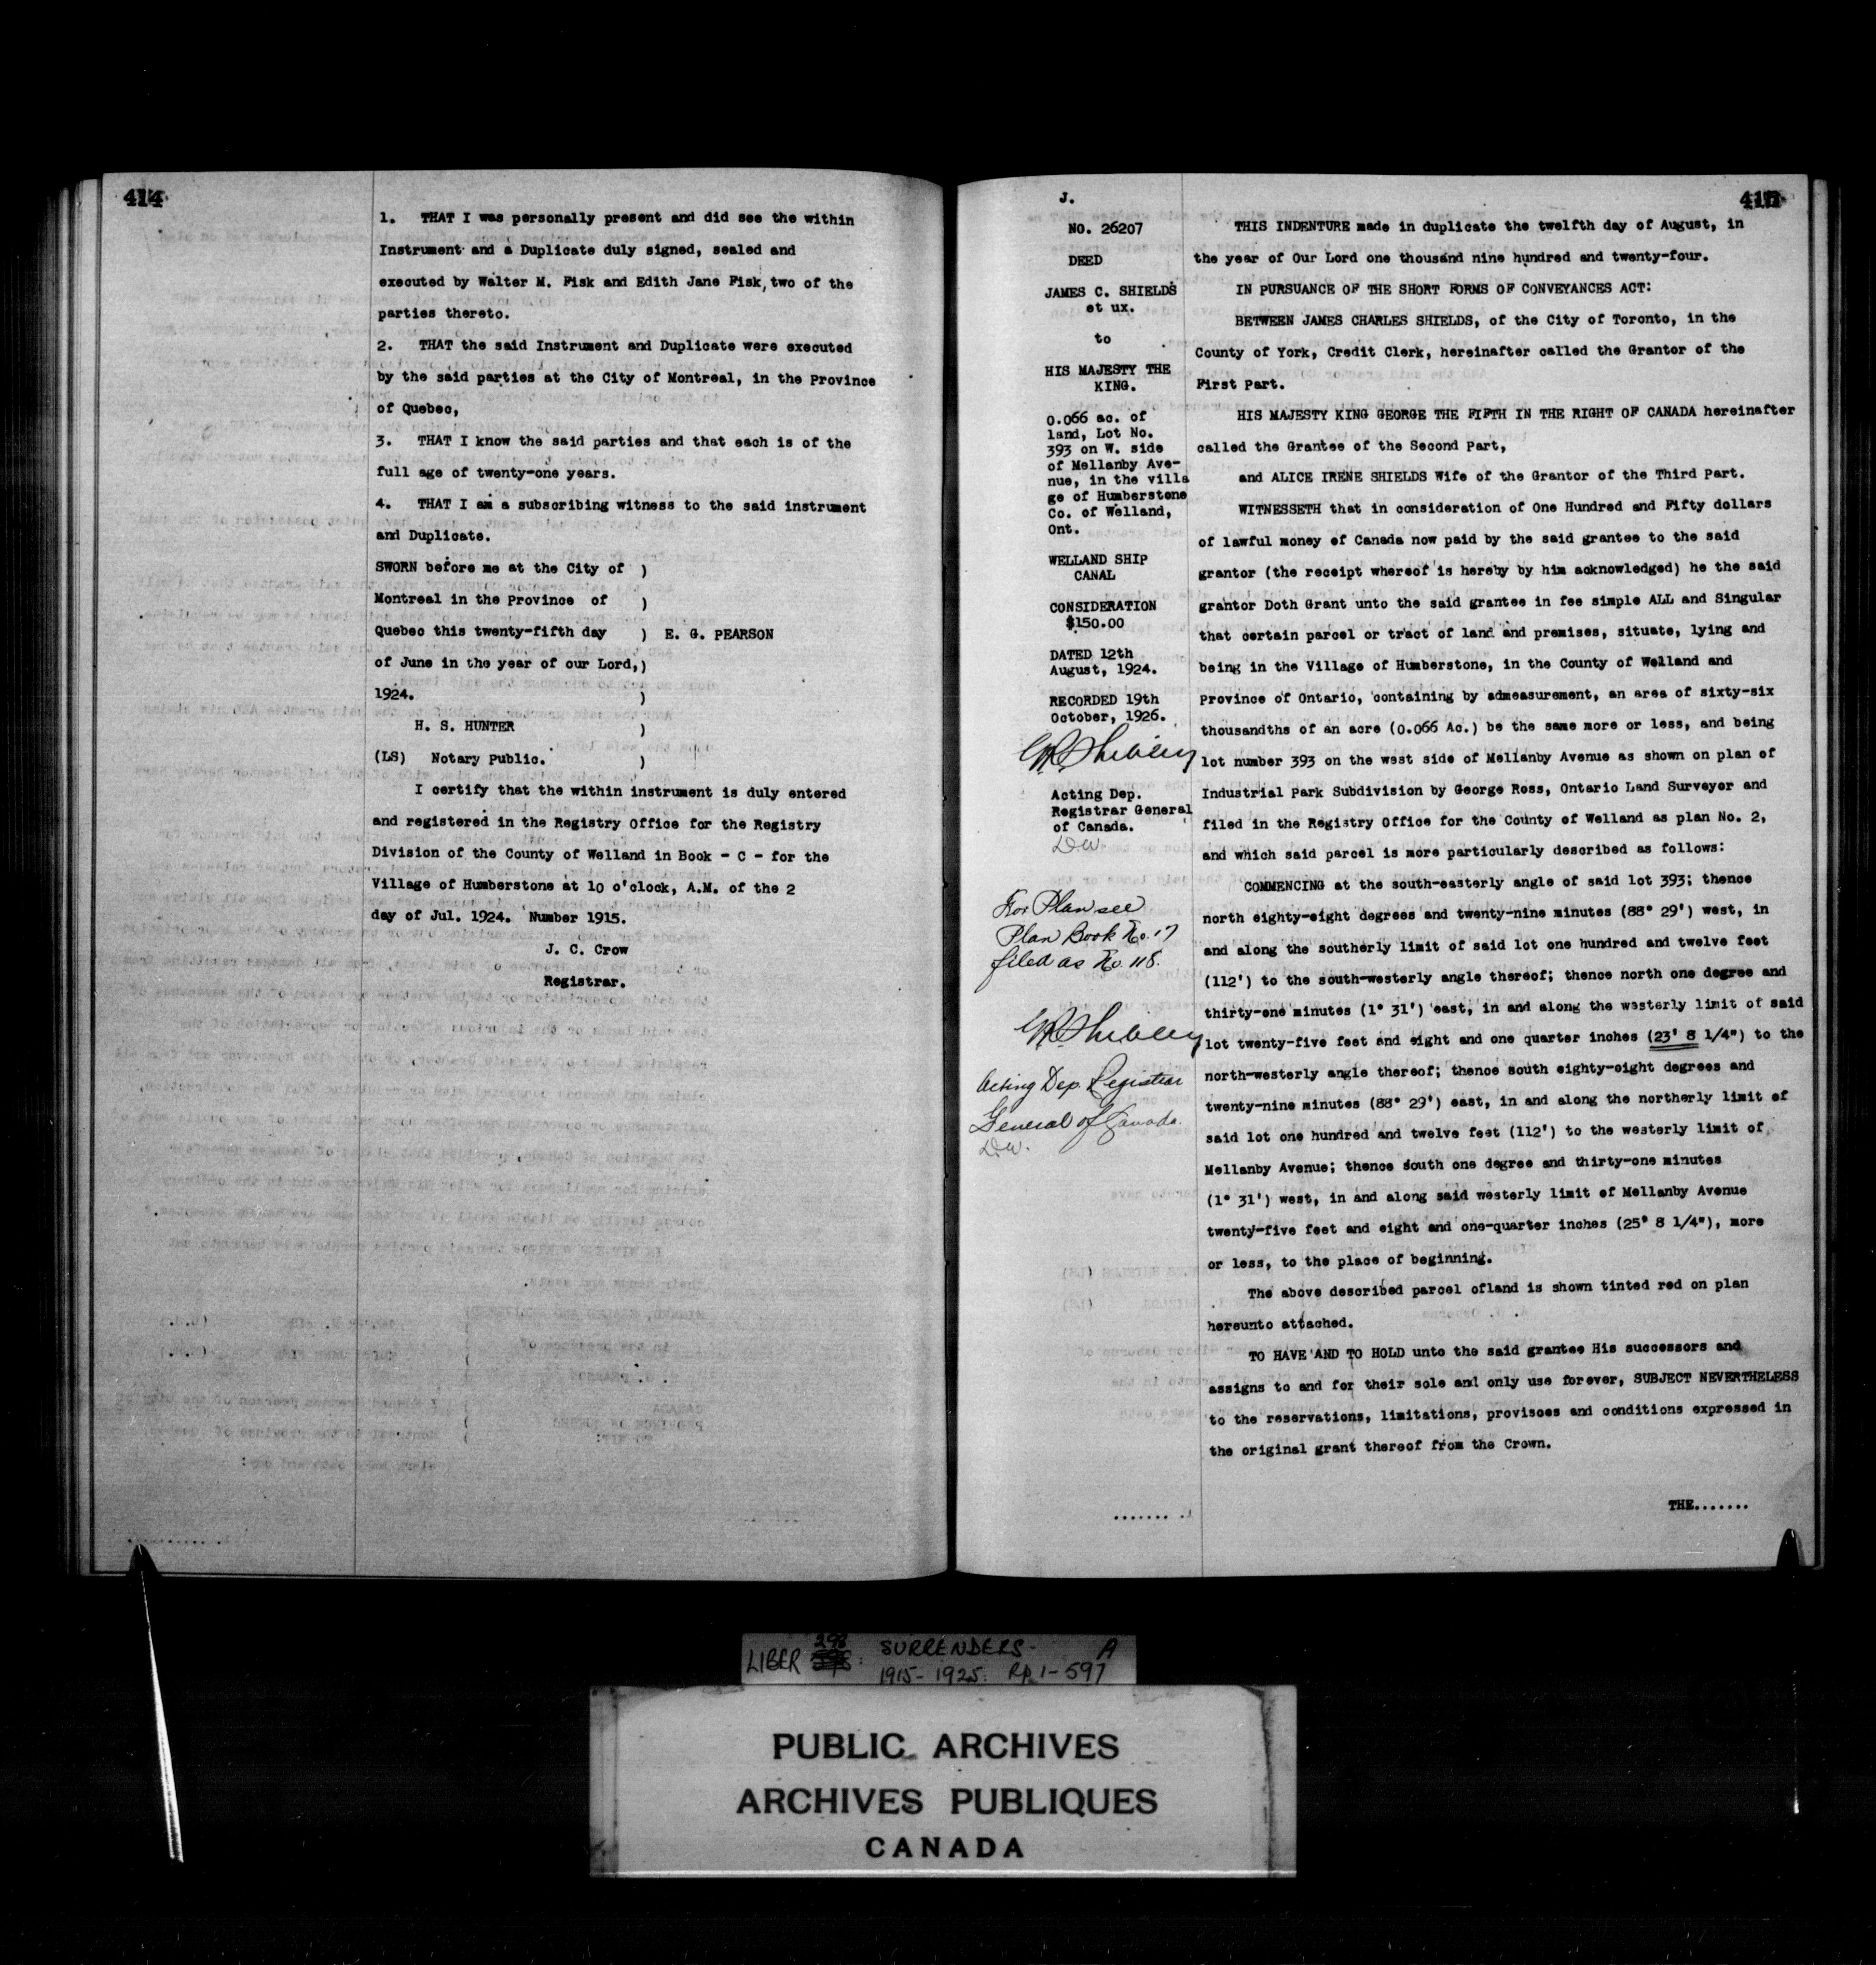 414
1. THAT I was personally present and did see the within
Instrument and a Duplicate duly signed, sealed and
executed by Walter M. Fisk and Edith Jane Fisk, two of the
parties thereto.
2. THAT the said Instrument and Duplicate were executed
by the said parties at the City of Montreal, in the Province
of Quebec,
3. THAT I know the said parties and that each is of the
full age of twenty-one years.
4. THAT I am a subscribing witness to the said instrument
and Duplicate.
SWORN before me at the City of )
Montreal in the Province of )
Quebec this twenty-fifth day ) E. G. PEARSON
of June in the year of our Lord,)
1924. )
H. S. HUNTER )
(LS) Notary Public. )
I certify that the within instrument is duly entered
and registered in the Registry Office for the Registry
Division of the County of Welland in Book - C - for the
Village of Humberstone at 10 o'clock, A.M. of the 2
day of Jul. 1924. Number 1915.
J. C. Crow
Registrar.
J.
NO. 26207
DEED
JAMES C. SHIELDS
et ux.
to
HIS MAJESTY THE
KING.
0.066 ac. of
land, Lot No.
393 on W. side
of Mellanby Ave-
nue, in the villa
ge of Humberstone
Co. of Welland,
Ont.
WELLAND SHIP
CANAL
CONSIDERATION
$150.00
DATED 12th
August, 1924.
RECORDED 19th
October, 1926.
Acting Dep.
Registrar General
of Canada.
D.W.
For Plan see
Plan Book No. 17
filed as No. 118.
Acting Dep. Registrar
General of Canada.
D.W.
THIS INDENTURE made in duplicate the twelfth day of August, in
the year of Our Lord one thousand nine hundred and twenty-four.
IN PURSUANCE OF THE SHORT FORMS OF CONVEYANCES ACT:
BETWEEN JAMES CHARLES SHIELDS, of the City of Toronto, in the
County of York, Credit Clerk, hereinafter called the Grantor of the
First Part.
HIS MAJESTY KING GEORGE THE FIFTH IN THE RIGHT OF CANADA hereinafter
called the Grantee of the Second Part,
and ALICE IRENE SHIELDS Wife of the Grantor of the Third Part.
WITNESSETH that in consideration of One Hundred and Fifty dollars
of lawful money of Canada now paid by the said grantee to the said
grantor (the receipt whereof is hereby by him acknowledged) he the said
grantor Doth Grant unto the said grantee in fee simple ALL and Singular
that certain parcel or tract of land and premises, situate, lying and
being in the Village of Humberstone, in the County of Welland and
Province of Ontario, containing by admeasurement, an area of sixty-six
thousandths of an acre (0.066 Ac.) be the same more or less, and being
lot number 393 on the west side of Mellanby Avenue as shown on plan of
Industrial Park Subdivision by George Ross, Ontario Land Surveyor and
filed in the Registry Office for the County of Welland as plan No. 2,
and which said parcel is more particularly described as follows:
COMMENCING at the south-easterly angle of said lot 393; thence
north eighty-eight degrees and twenty-nine minutes (88° 29') west, in
and along the southerly limit of said lot one hundred and twelve feet
(112') to the south-westerly angle thereof; thence north one degree and
thirty-one minutes (1° 31') east, in and along the westerly limit of said
lot twenty-five feet and eight and one quarter inches (23' 8 1/4") to the
north-westerly angle thereof; thence south eighty-eight degrees and
twenty-nine minutes (88° 29') east, in and along the northerly limit of
said lot one hundred and twelve feet (112') to the westerly limit of
Mellanby Avenue; thence south one degree and thirty-one minutes
(1° 31') west, in and along said westerly limit of Mellanby Avenue
twenty-five feet and eight and one-quarter inches (25' 8 1/4"), more
or less, to the place of beginning.
The above described parcel ofland is shown tinted red on plan
hereunto attached.
TO HAVE AND TO HOLD unto the said grantee His successors and
assigns to and for their sole and only use forever, SUBJECT NEVERTHELESS
to the reservations, limitations, provisoes and conditions expressed in
the original grant thereof from the Crown.
THE.......
LIBER 298: SURRENDERS- A
1915-1925: Pp 1-597
PUBLIC ARCHIVES
ARCHIVES PUBLIQUES
CANADA